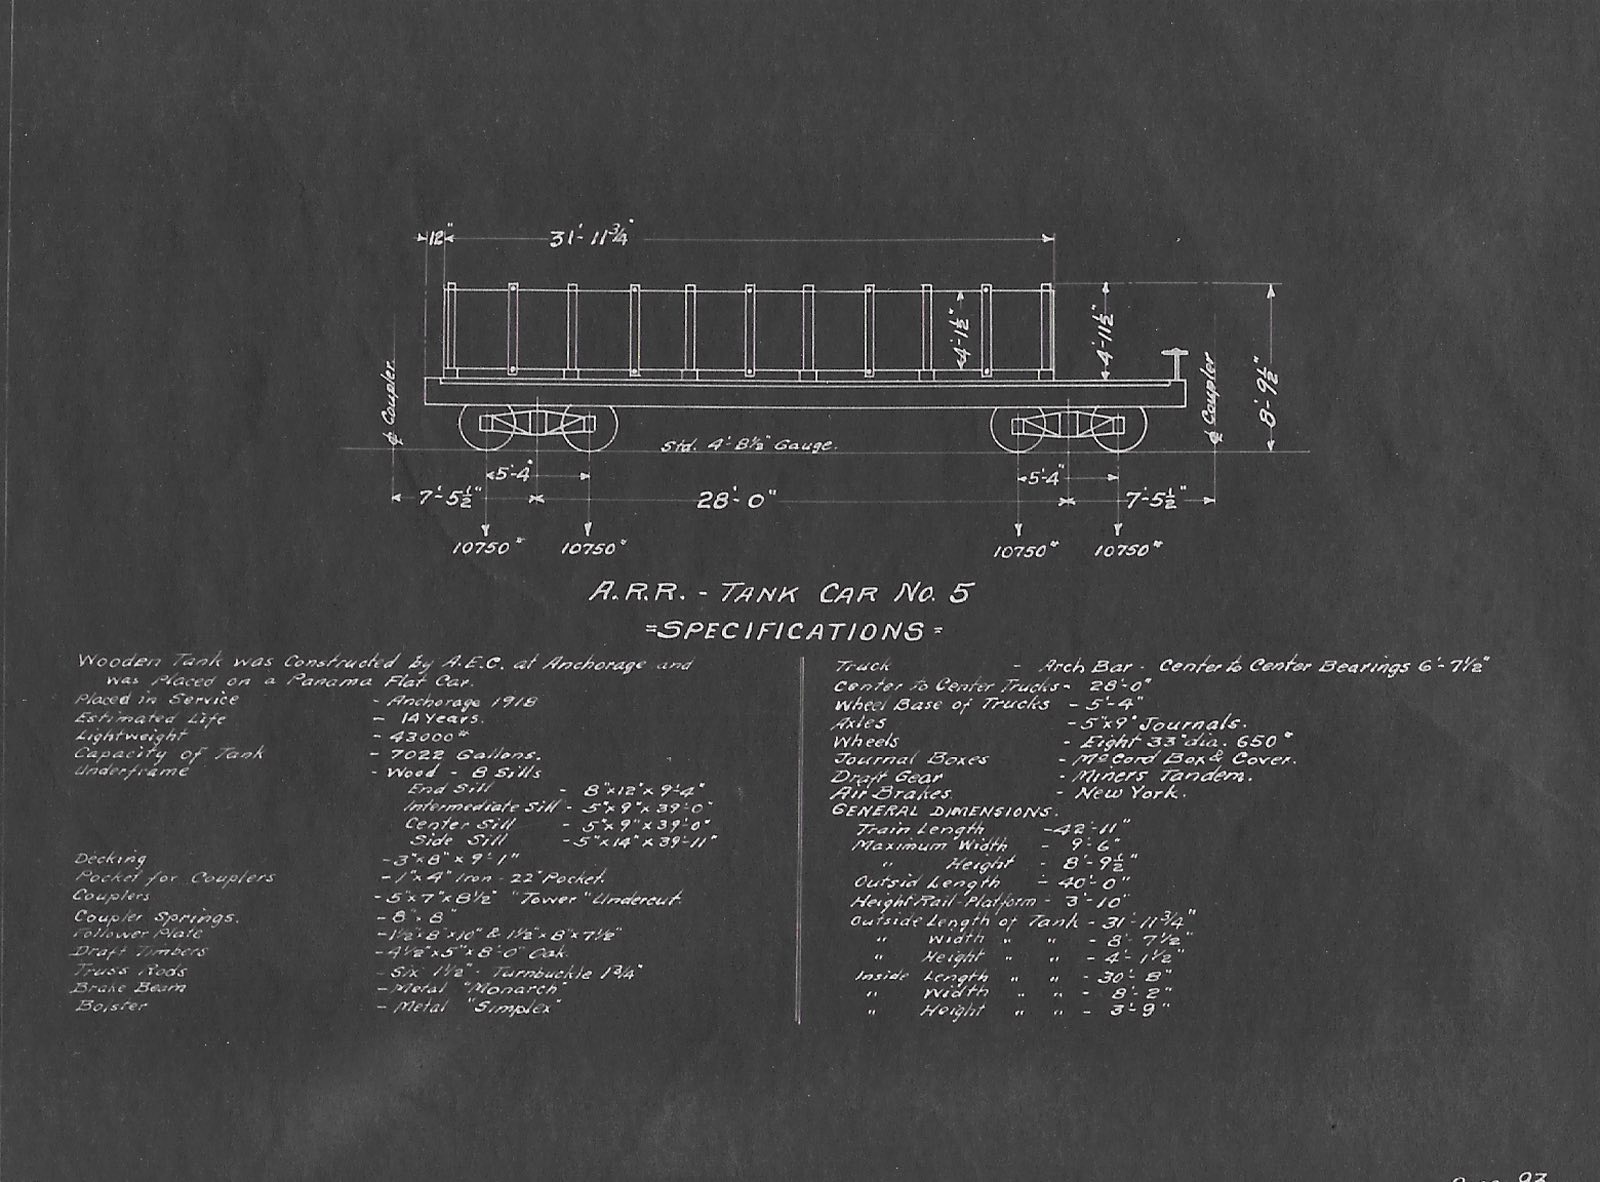 12" 31'-11¾"
4'-1½" 4'-11½" 8'-9½"
℄ Coupler ℄ Coupler
Std. 4'-8½" Gauge.
5'-4" 5'-4"
7'-5½" 28'-0" 7'-5½"
10750# 10750# 10750# 10750#
A.R.R. - TANK CAR NO. 5
=SPECIFICATIONS=
Wooden Tank was Constructed by A.E.C. at Anchorage and
was Placed on a Panama Flat Car.
Placed in Service - Anchorage 1918
Estimated Life - 14 Years.
Lightweight - 43000#
Capacity of Tank - 7022 Gallons.
Underframe - Wood - 8 Sills
End Sill - 8"x12"x9'-4"
Intermediate Sill - 5"x9"x39'-0"
Center Sill - 5"x9"x39'-0"
Side Sill - 5"x14"x39'-11"
Decking - 3"x8"x9'-1"
Pocket for Couplers - 1"x4" Iron - 22" Pocket.
Couplers - 5"x7"x8½" "Tower" Undercut.
Coupler Springs. - 8"x8"
Follower Plate - 1½"x8"x10" & 1½"x8"x7½"
Draft Timbers - 4½"x5"x8'-0" Oak.
Truss Rods - Six 1½" - Turnbuckle 1¾"
Brake Beam - Metal "Monarch"
Bolster - Metal "Simplex"
Truck - Arch Bar - Center to Center Bearings 6'-7½"
Center to Center Trucks - 28'-0"
Wheel Base of Trucks - 5'-4"
Axles - 5"x9" Journals.
Wheels - Eight 33" dia. 650#
Journal Boxes - McCord Box & Cover.
Draft Gear - Miners Tandem.
Air Brakes - New York.
GENERAL DIMENSIONS.
Train Length - 42'-11"
Maximum Width - 9'-6"
" Height - 8'-9½"
Outsid Length - 40'-0"
Height Rail-Platform - 3'-10"
Outside Length of Tank - 31'-11¾"
" Width " " - 8'-7½"
" Height " " - 4'-1½"
Inside Length " " - 30'-8"
" Width " " - 8'-2"
" Height " " - 3'-9"